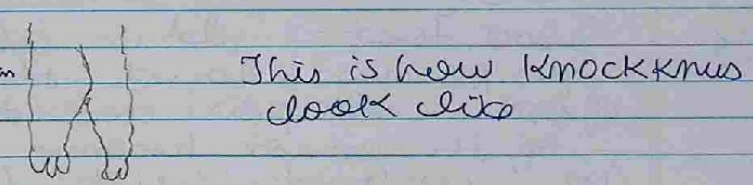 This is how knockknus
look like